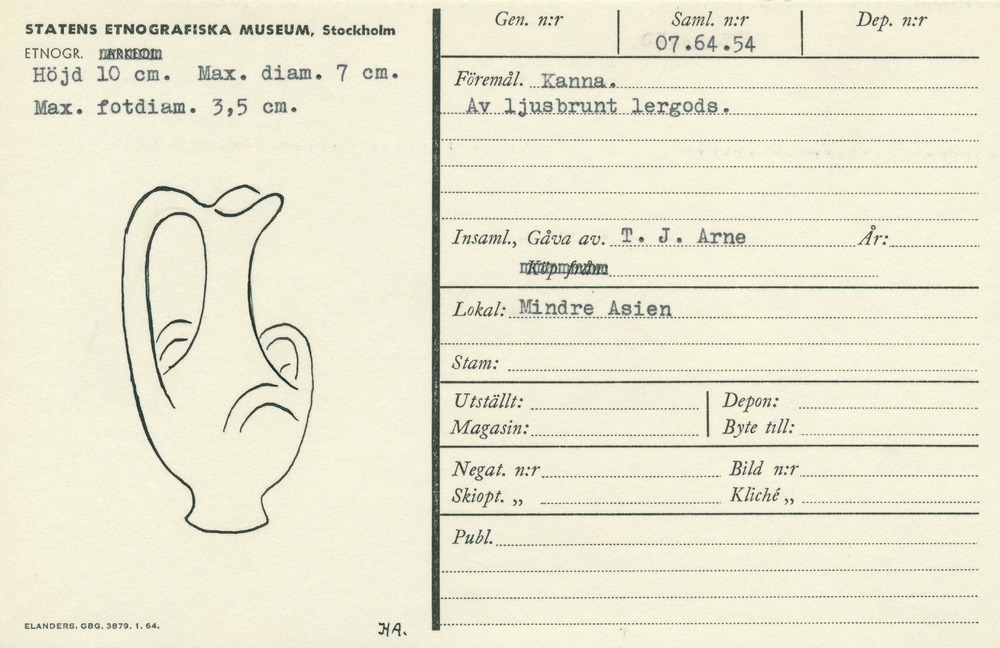 STATENS ETNOGRAFISKA MUSEUM, Stockholm
ETNOGR. ARKEOL.
Höjd 10 cm. Max. diam. 7 cm.
Max. fotdiam. 3,5 cm.
ELANDERS. GBG. 3879. 1. 64.
HA.
Gen. n:r Saml. n:r Dep. n:r
07.64.54
Föremål. Kanna.
Av ljusbrunt lergods.
Insaml., Gåva av. T. J. Arne År:
Köp från
Lokal: Mindre Asien
Stam:
Utställt: Depon:
Magasin: Byte till:
Negat. n:r Bild n:r
Skiopt. „ Kliché „
Publ.